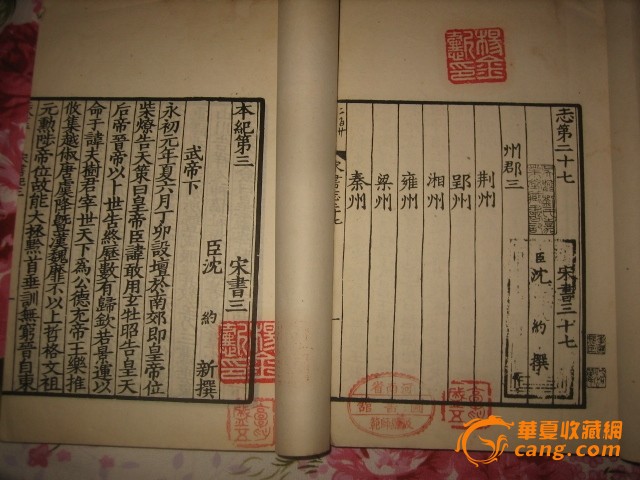 志第二十七 宋書三十七
臣沈 約 撰
州郡三
荆州
郢州
湘州
雍州
梁州
秦州
本紀第三 宋書三
臣沈 約 新撰
武帝下
永初元年夏六月丁卯設壇於南郊即皇帝位
柴燎告天策曰皇帝臣諱敢用玄牡昭告皇天
后帝晉帝以卜世告終歷數有歸欽若景運以
命于諱夫樹君宰世天下為公德充帝王樂推
攸集越俶唐虞降暨漢魏靡不以上哲格文祖
元勲陟帝位故能大拯黔首垂訓無窮晉自東
華夏收藏網
cang.com